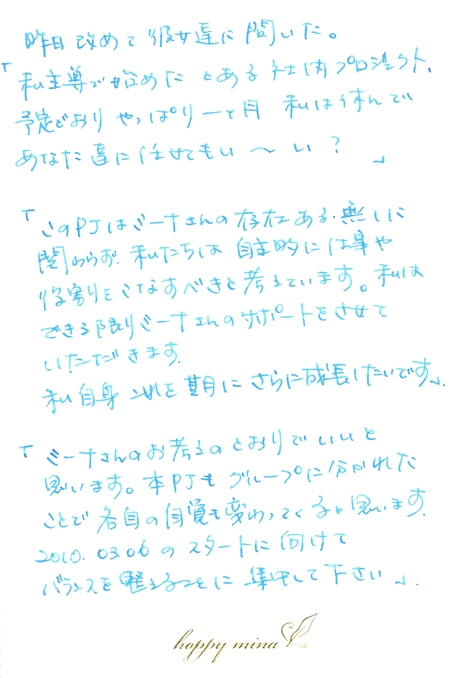 昨日改めて彼女達に聞いた。
「私主導で始めたとある社内プロジェクト、
予定どおりやっぱり一ヶ月 私は休んで
あなた達に任せてもい〜い？ 」
「このPJはミーナさんの存在ある・無しに
関わらず、私たちは自主的に仕事や
役割りをこなすべきと考えています。私は
できる限りミーナさんのサポートをさせて
いただきます。
私自身 これを期にさらに成長したいです」
「ミーナさんのお考えのとおりでいいと
思います。本PJもグループに分かれた
ことで各自の自覚も変わってくると思います。
2010.03.06のスタートに向けて
バランスを整えることに集中して下さい」
happy mina